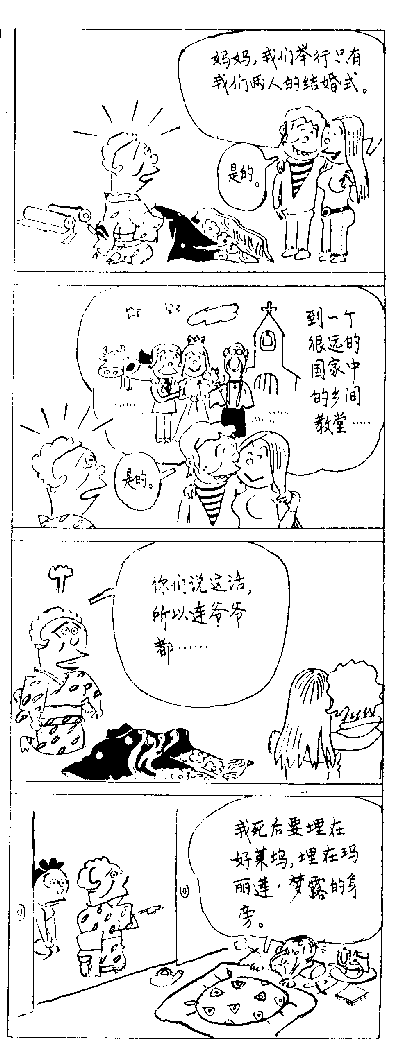 妈妈,我们举行只有
我们两人的结婚式。
是的。
到一个
很远的
国家中
的乡间
教堂……
是的。
你们说这话,
所以连爷爷
都……
我死后要埋在
好莱坞,埋在玛
丽莲·梦露的身
旁。